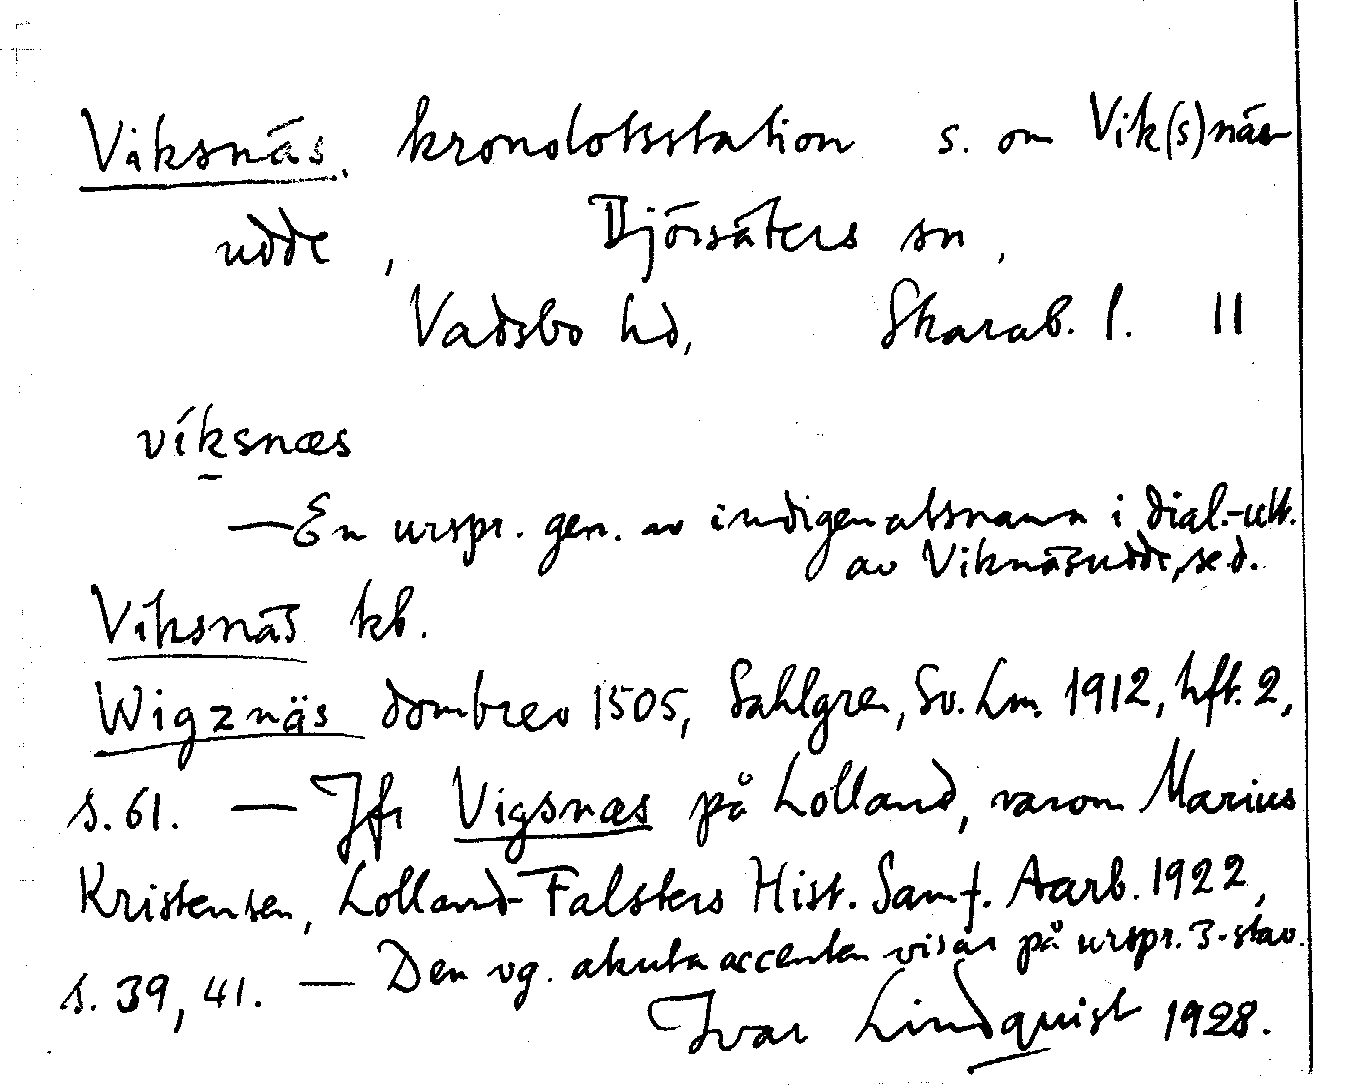 Viksnäs, kronolotsstation s. om Vik(s)näs-
udde, Björsäters sn,
Vadsbo hd, Skarab. l. II
víksnæs
— En urspr. gen. av indigenatsnamn i dial.-utt.
av Viknäsudde, se d.
Viksnäs kb.
Wigznäs dombrev 1505, Sahlgren, Sv. Lm. 1912, hft. 2,
s. 61. — Jfr Vigsnæs på Lolland, varom Marius
Kristensen, Lolland-Falsters Hist. Samf. Aarb. 1922,
s. 39, 41. — Den vg. akuta accenten visar på urspr. 3-stav.
Ivar Lindquist 1928.